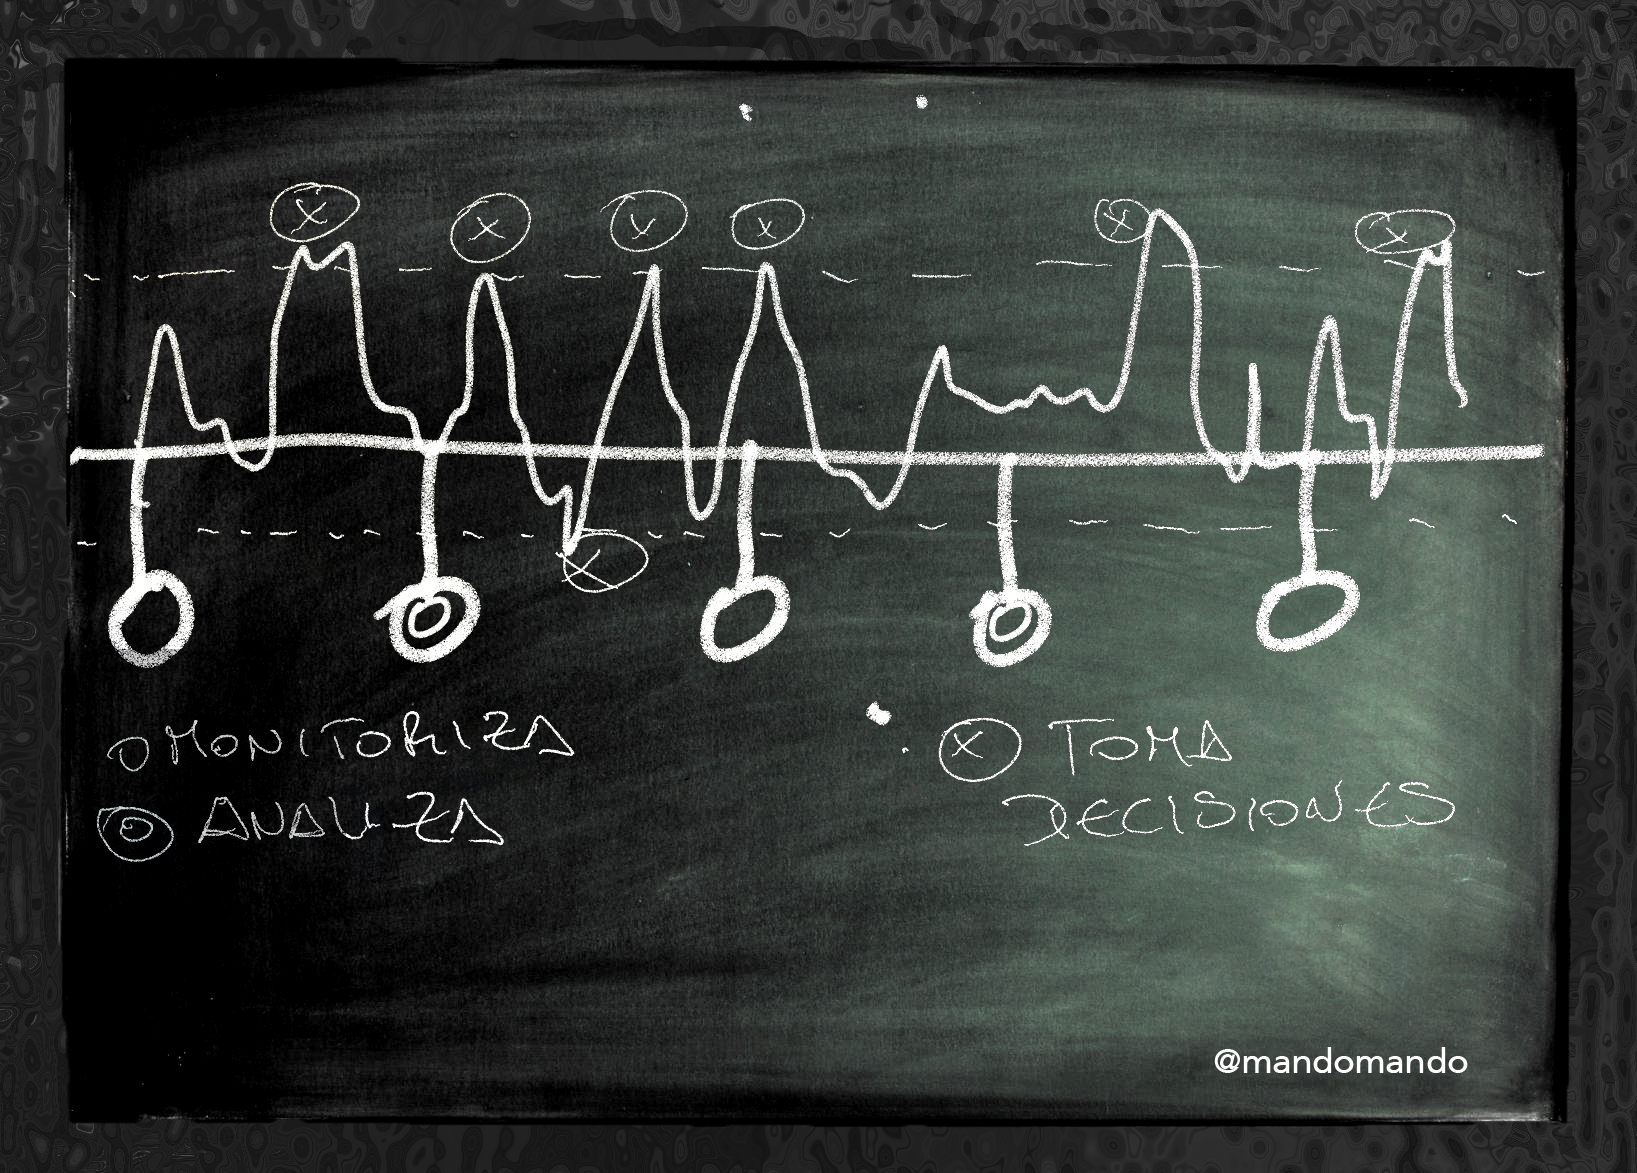 X X X X X X
X
O MONITORIZA
ANALIZA
X TOMA
DECISIONES
@mandomando